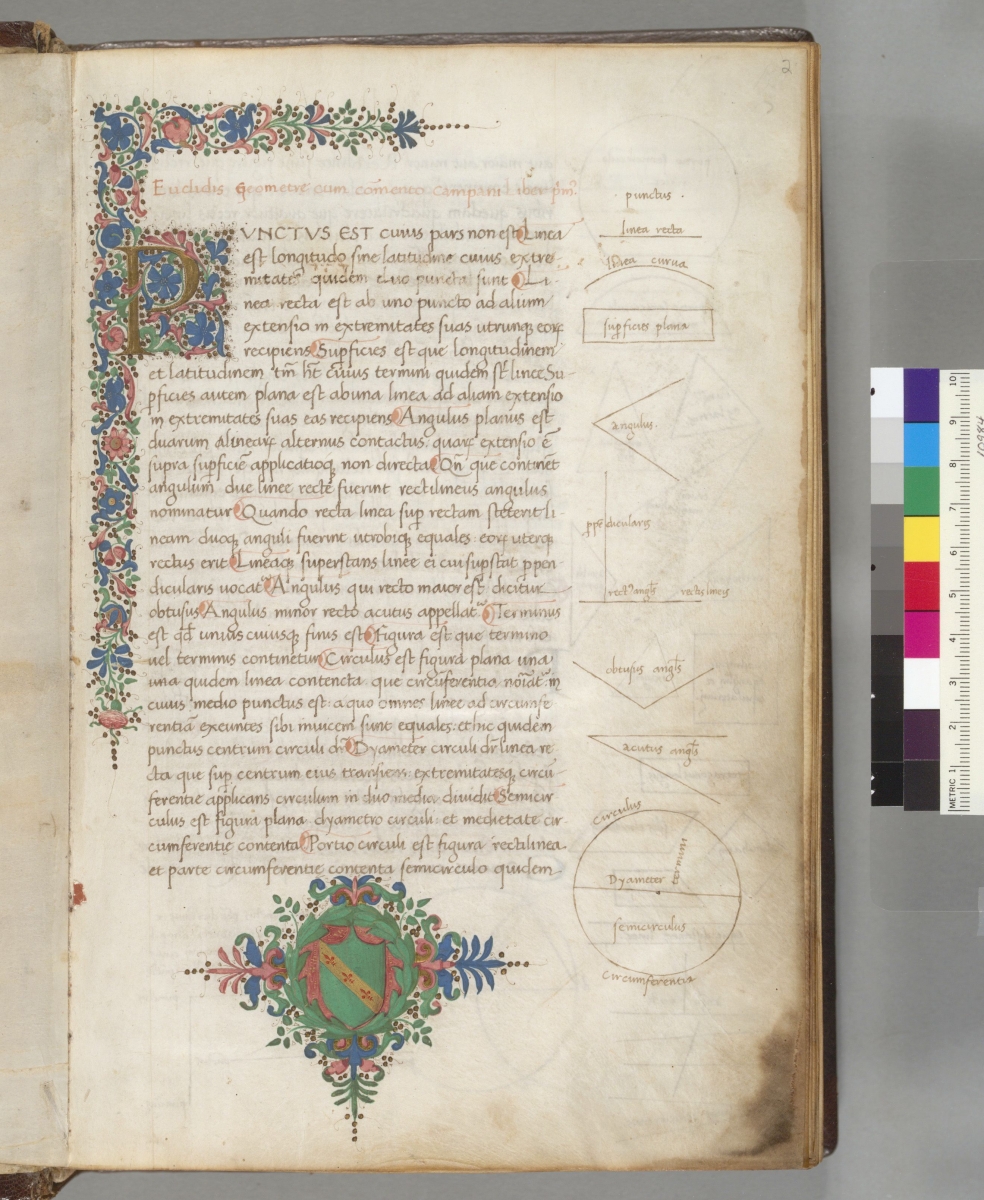 2
Euclidis Geometre cum cōmento Campani liber pim9
PVNCTVS EST cuius pars non est Linea
est longitudo sine latitudine cuius extre-
mitates quidem duo puncta sunt Li-
nea recta est ab uno puncto ad alium
extensio in extremitates suas utrunqꝫ eoꝝ
recipiens Supficies est que longitudinem
et latitudinem tm̄ hēt cuius termini quidem st̄ linee Su-
pficies autem plana est ab una linea ad aliam extensio
in extremitates suas eas recipiens Angulus planus est
duarum a lineaꝝ alternus contactus quaꝝ extensio ē
supra supficiē applicatioqꝫ non directa Qn̄ que continēt
angulum due linee recte fuerint rectilineus angulus
nominatur Quando recta linea sup rectam steterit li-
neam duoqꝫ anguli fuerint utrobiqꝫ equales eoꝝ uterqꝫ
rectus erit Lineaqꝫ superstans linee ei cui supstat ppen
dicularis uocat᷑ Angulus qui recto maior est dicitur
obtusus Angulus minor recto acutus appellat᷑ Terminus
est qd̄ uniuscuiusqꝫ finis est Figura est que termino
uel terminis continetur Circulus est figura plana una
una quidem linea contenta que circūferentia noīat᷑: in
cuius medio punctus est: a quo omnes linee ad circumfe
rentiā exeuntes sibi inuicem sunt equales: et hic quidem
punctus centrum circuli dr̄ Dyameter circuli dr̄ linea re-
cta que sup centrum eius transiens extremitatesqꝫ circū-
ferentie applicans circulum in duo media diuidit Semicir
culus est figura plana dyametro circuli et medietate cir-
cumferentie contenta Portio circuli est figura rectilinea
et parte circumferentie contenta semicirculo quidem
punctus
linea recta
linea curua
supficies plana
angulus
ppēdicularis
rect9 angl̄s rectilineus
obtusus angl̄s
acutus angl̄s
circulus
Dyameter
termini
semicirculus
circumferentia
10984
10
9
8
7
6
5
4
3
2
METRIC 1